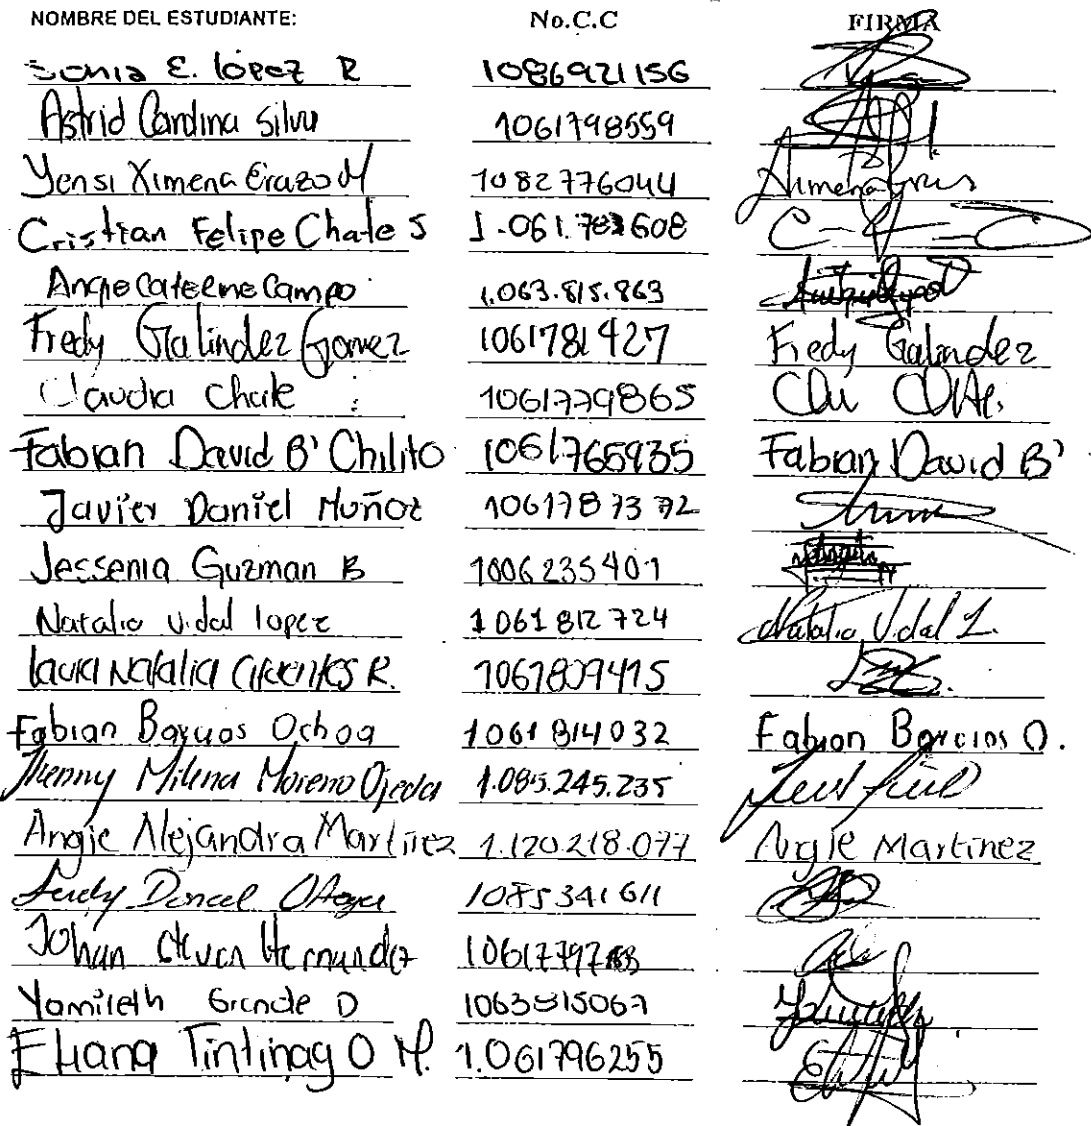 NOMBRE DEL ESTUDIANTE: No.C.C FIRMA
Sonia E. lopez R 1086921156
Astrid Carolina Silva 1061798559
Yensi Ximena Erazo M 1082776044 Ximena
Cristian Felipe Chate S 1.061.783608
Angie Caterine Campo 1.063.815.863
Fredy Galindez Gomez 1061781427 Fredy Galindez
Claudia Chate 1061779865
Fabian David B' Chilito 1061765935 Fabian David B'
Javier Daniel Muñoz 1061787372
Jessenia Guzman B 1006235401
Natalia vidal lopez 1061812724 Natalia Vidal L.
laura Natalia Cifuentes R. 1061809415
Fabian Barcios Ochoa 1061814032 Fabian Barcios O.
Jhenny Milena Moreno Ojeda 1.085.245.235
Angie Alejandra Martinez 1.120.218.077 Angie Martinez
1085341611
Johan Steven Hernandez
Yamileth Grande D 1063815067
Eliana Tintinago M. 1.061796255